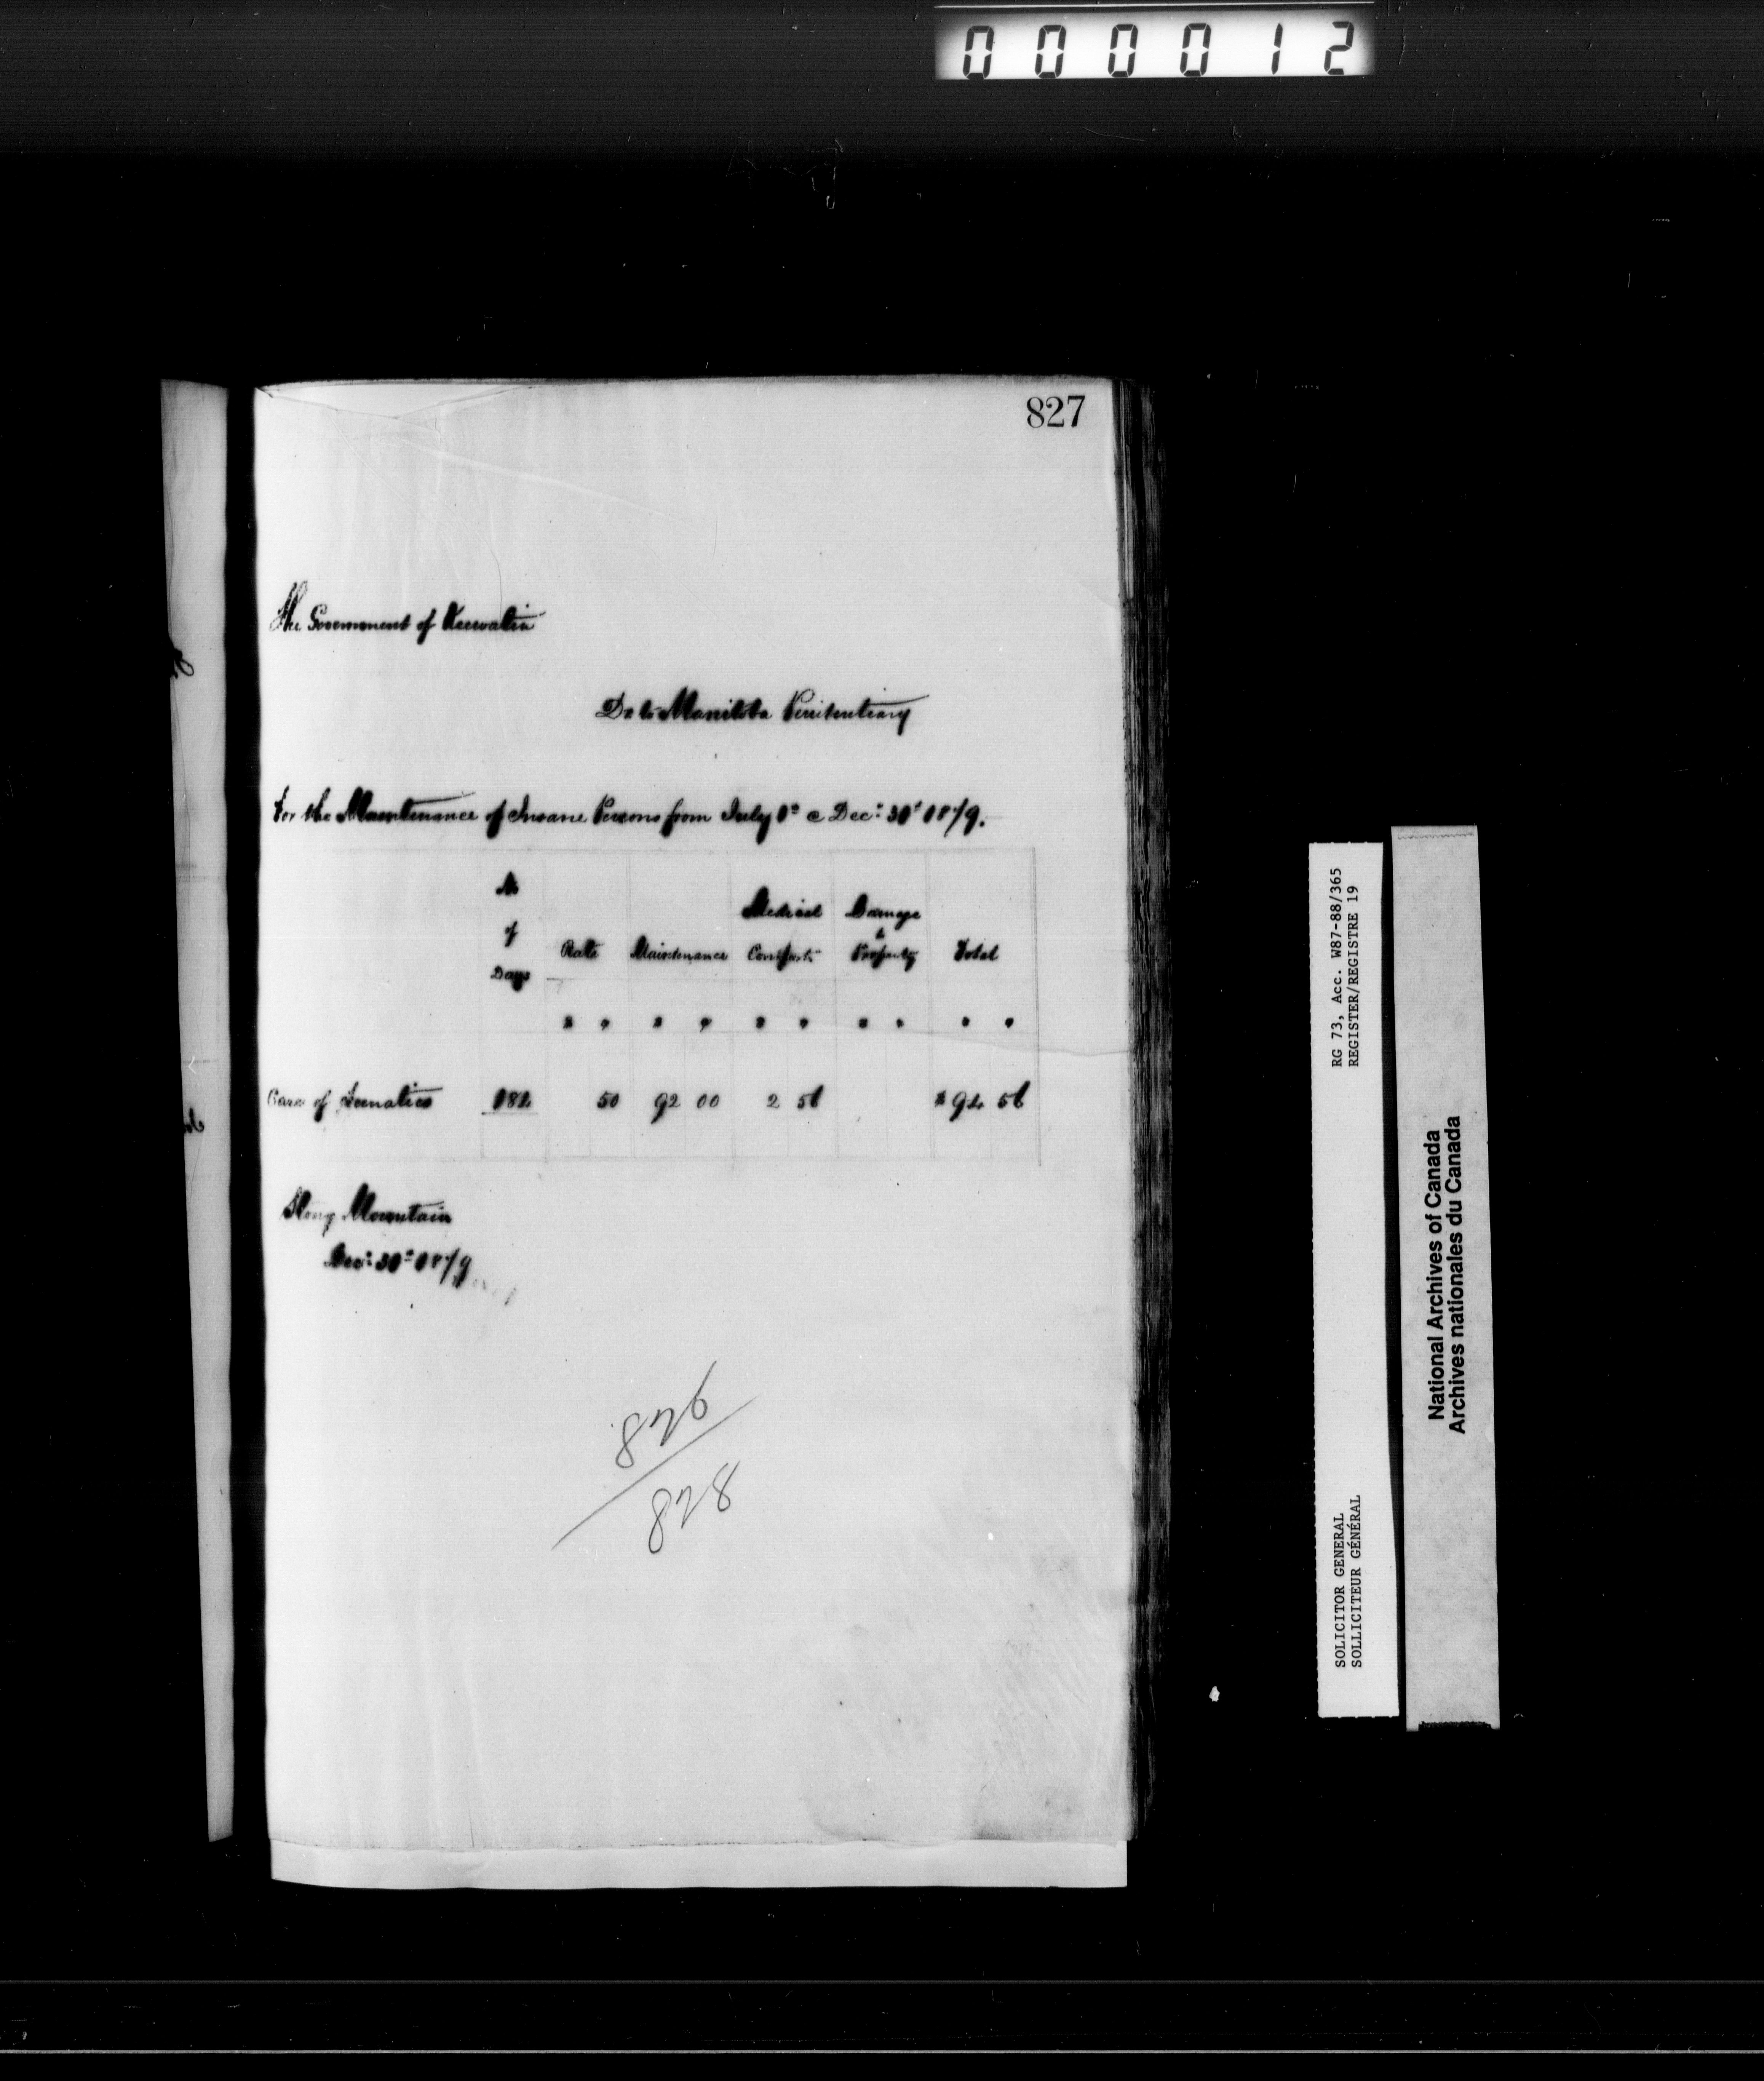 000012
827
The Government of Keewatin
Dr to Manitoba Penitentiary
For the Maintenance of Insane Persons from July 1st @ Dec: 30th 1879.
No of Days Rate Maintenance Medical Comforts Damage to Property Total
Care of Lunatics 184 50 92 00 2 56 $ 94 56
Stony Mountain
Dec: 30th 1879
826
828
RG 73, Acc. W87-88/365
REGISTER/REGISTRE 19
SOLICITOR GENERAL
SOLLICITEUR GÉNÉRAL
National Archives of Canada
Archives nationales du Canada